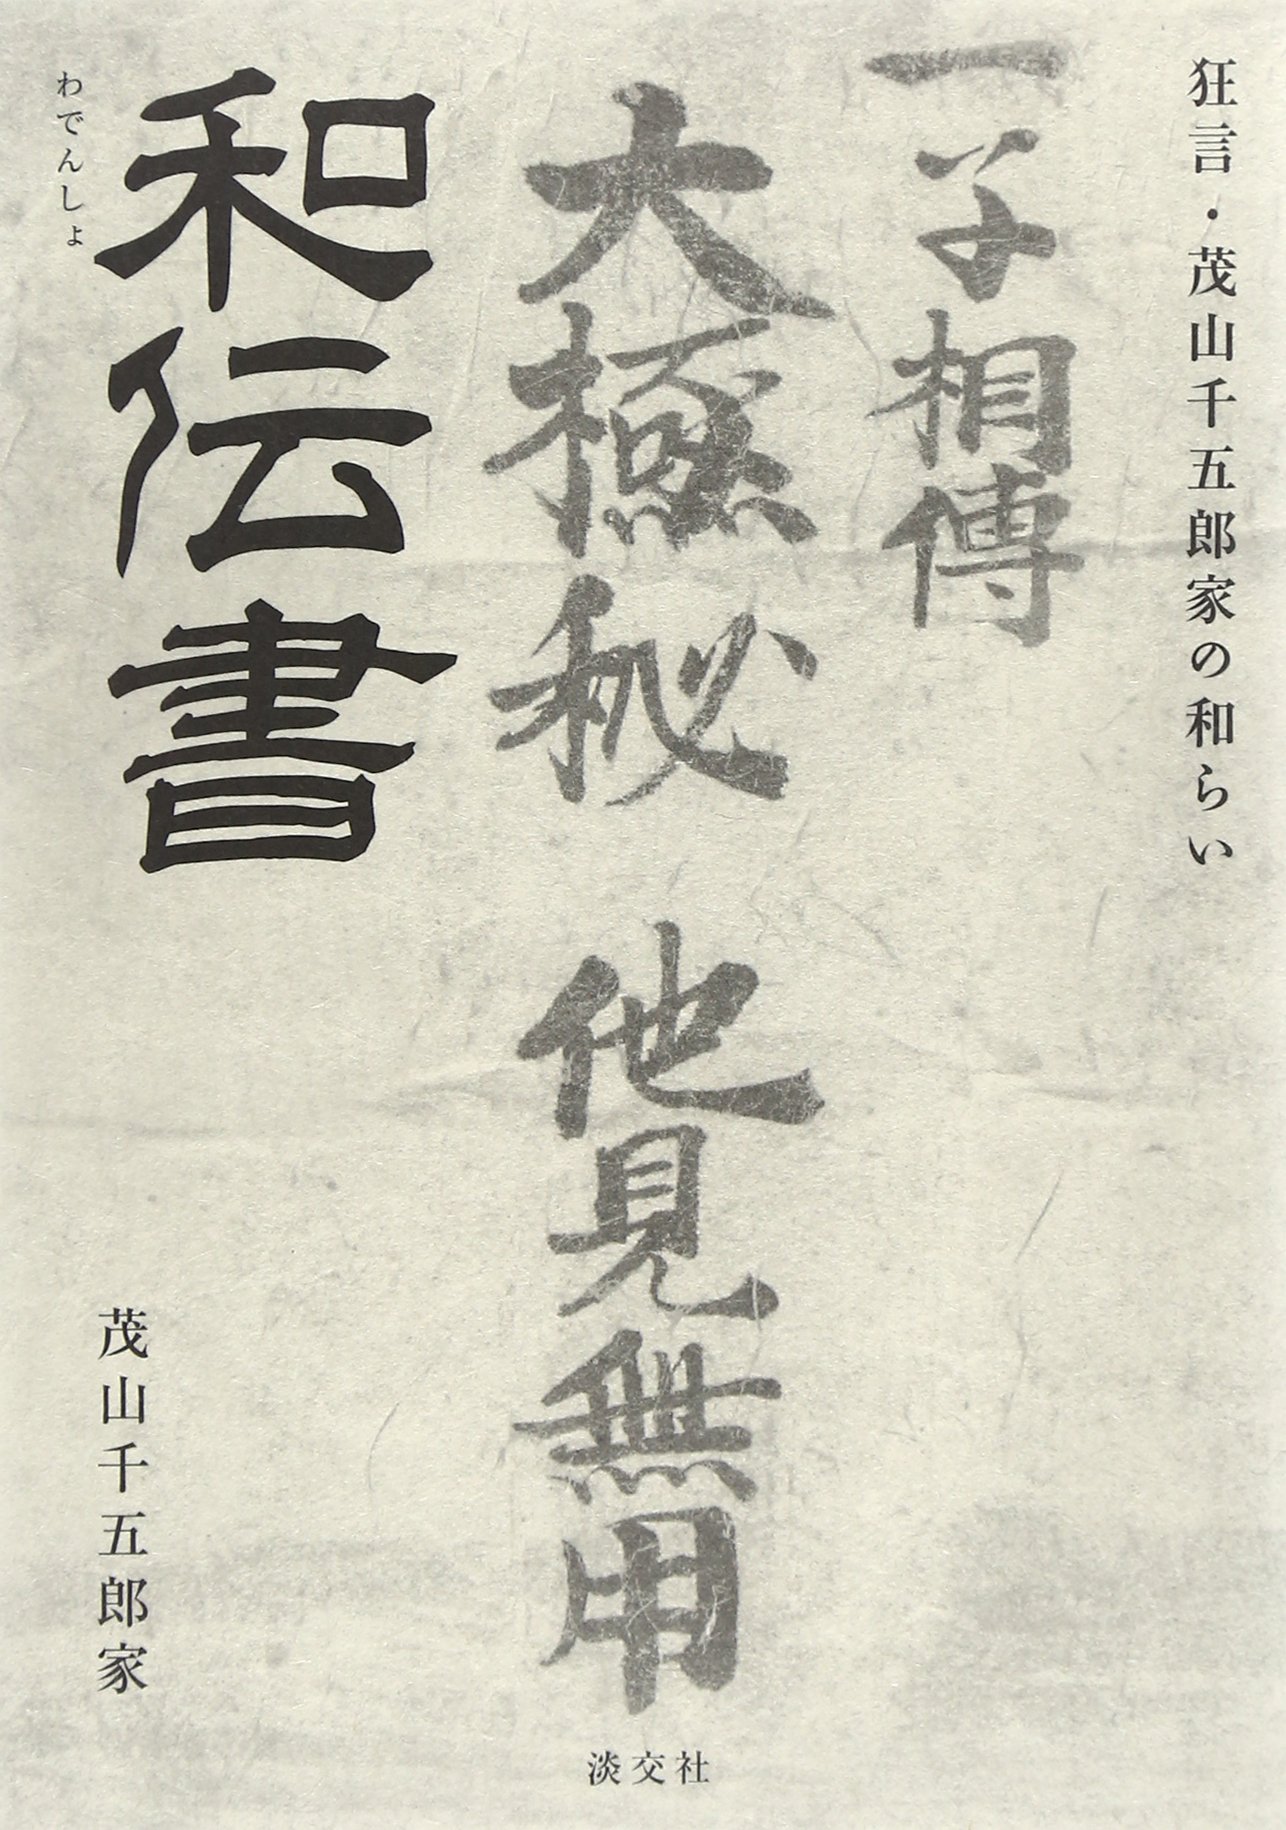 狂言・茂山千五郎家の和らい
一子相傳
大極秘 他見無用
和伝書
わでんしょ
茂山千五郎家
淡交社